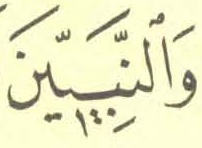 وَٱلنَّبِيِّـۧنَ